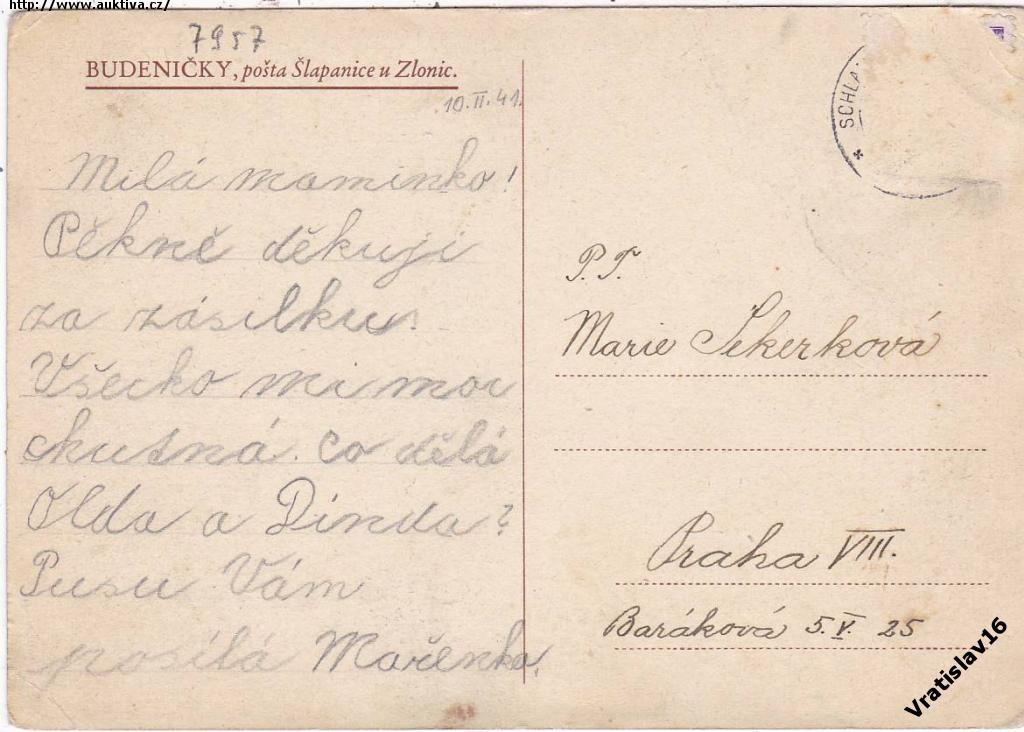 http://www.auktiva.cz/
7957
BUDENIČKY, pošta Šlapanice u Zlonic.
10.II.41.
Milá maminko!
Pěkně děkuji
za zásilku.
Všecko mi moc
chutná. Co dělá
Olda a Dinda?
Pusu Vám
posílá Mařenka.
* SCHLA
P. T.
Marie Sekerková
Praha VIII.
Baráková 5.V. 25
Vratislav16